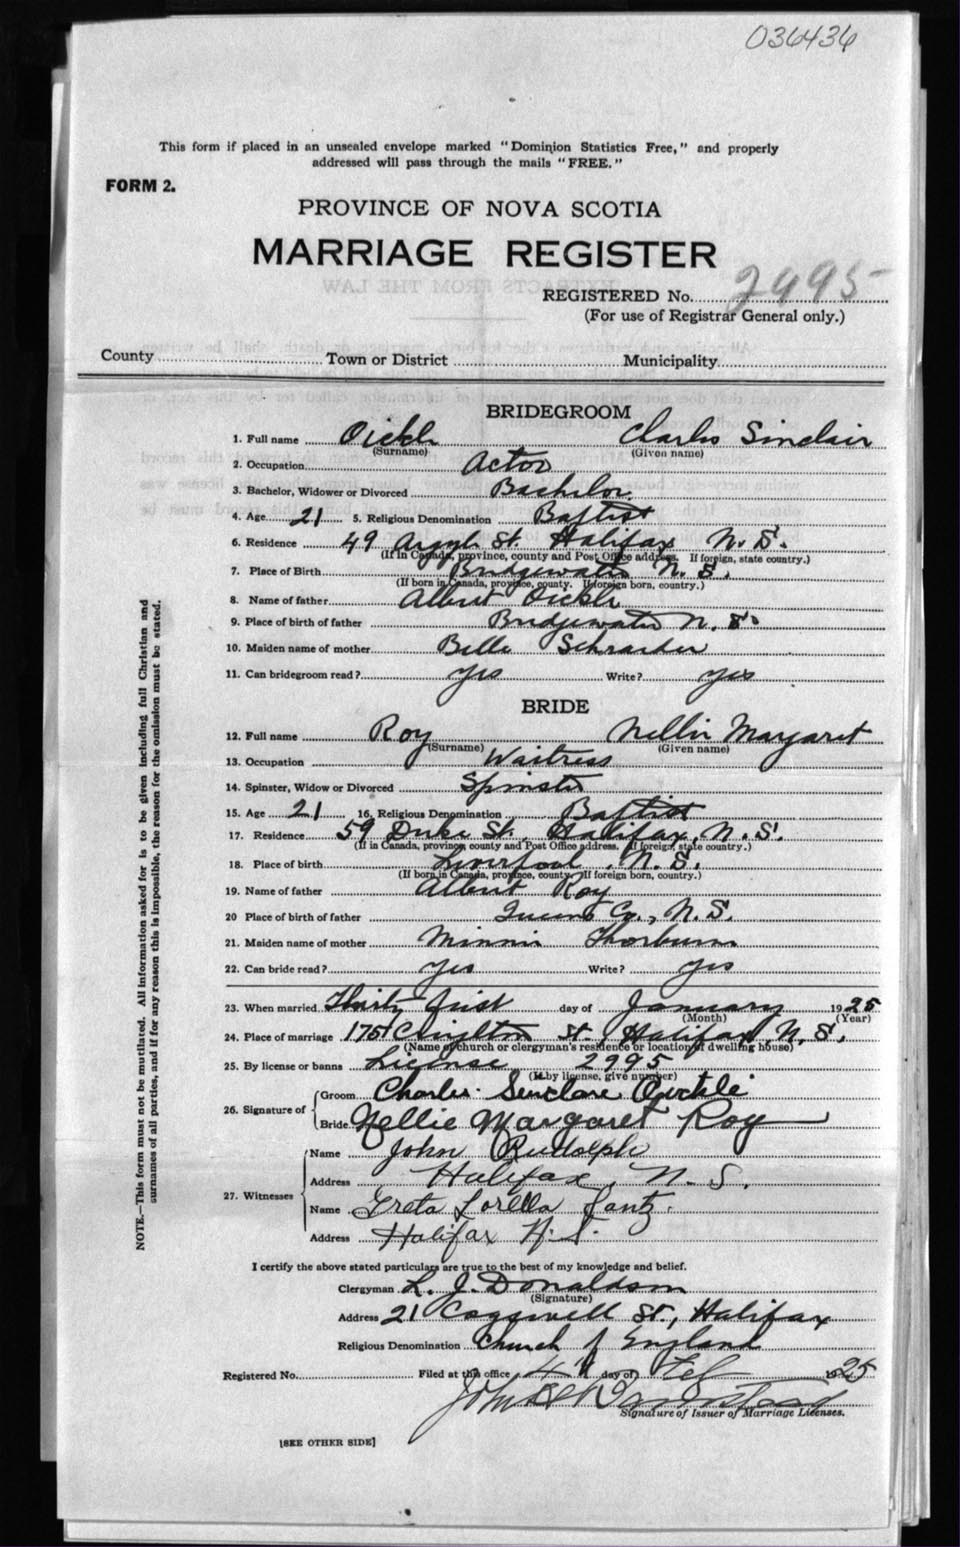 036436
This form if placed in an unsealed envelope marked "Dominion Statistics Free," and properly
addressed will pass through the mails "FREE."
FORM 2.
PROVINCE OF NOVA SCOTIA
MARRIAGE REGISTER
REGISTERED No. 2995
(For use of Registrar General only.)
County Town or District Municipality
BRIDEGROOM
1. Full name Oickle Charles Sinclair
(Surname) (Given name)
2. Occupation Actor
3. Bachelor, Widower or Divorced Bachelor
4. Age 21 5. Religious Denomination Baptist
6. Residence 49 Argyle St. Halifax N. S.
(If in Canada, province, county and Post Office address. If foreign, state country.)
7. Place of Birth Bridgewater N. S.
(If born in Canada, province, county. If foreign born, country.)
8. Name of father Albert Oickle
9. Place of birth of father Bridgewater N. S.
10. Maiden name of mother Belle
11. Can bridegroom read? yes Write? yes
BRIDE
12. Full name Roy Nellie Margaret
(Surname) (Given name)
13. Occupation Waitress
14. Spinster, Widow or Divorced Spinster
15. Age 21 16. Religious Denomination Baptist
17. Residence 59 Duke St. Halifax, N. S.
(If in Canada, province, county and Post Office address. If foreign, state country.)
18. Place of birth Liverpool, N. S.
(If born in Canada, province, county. If foreign born, country.)
19. Name of father Albert Roy
20 Place of birth of father Queens Co., N. S.
21. Maiden name of mother Minnie Thorburn
22. Can bride read? yes Write? yes
23. When married Thirty first day of January 1925
(Month) (Year)
24. Place of marriage St. Halifax, N. S.
(Name of church or clergyman's residence or location of dwelling house)
25. By license or banns License 2995
(If by license, give number)
26. Signature of Groom Charles Sinclare
Bride Nellie Margaret Roy
27. Witnesses
Name John Rudolph
Address Halifax, N. S.
Name Greta Lorella Jantz
Address Halifax N. S.
I certify the above stated particulars are true to the best of my knowledge and belief.
Clergyman L. J. Donaldson
(Signature)
Address 21 Cogswell St., Halifax
Religious Denomination Church of England
Registered No. Filed at this office 4 day of Feb 1925
Signature of Issuer of Marriage Licenses.
[SEE OTHER SIDE]
NOTE.—This form must not be mutilated. All information asked for is to be given including full Christian and
surnames of all parties, and if for any reason this is impossible, the reason for the omission must be stated.